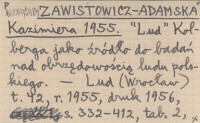 ZAWISTOWICZ-ADAMSKA
Kazimiera 1955. "Lud" Kol-
berga jako źródło do badań
nad obrzędowością ludu pols-
kiego. — Lud (Wrocław)
t. 42, r. 1955, druk 1956,
s. 332-412, tab. 2,